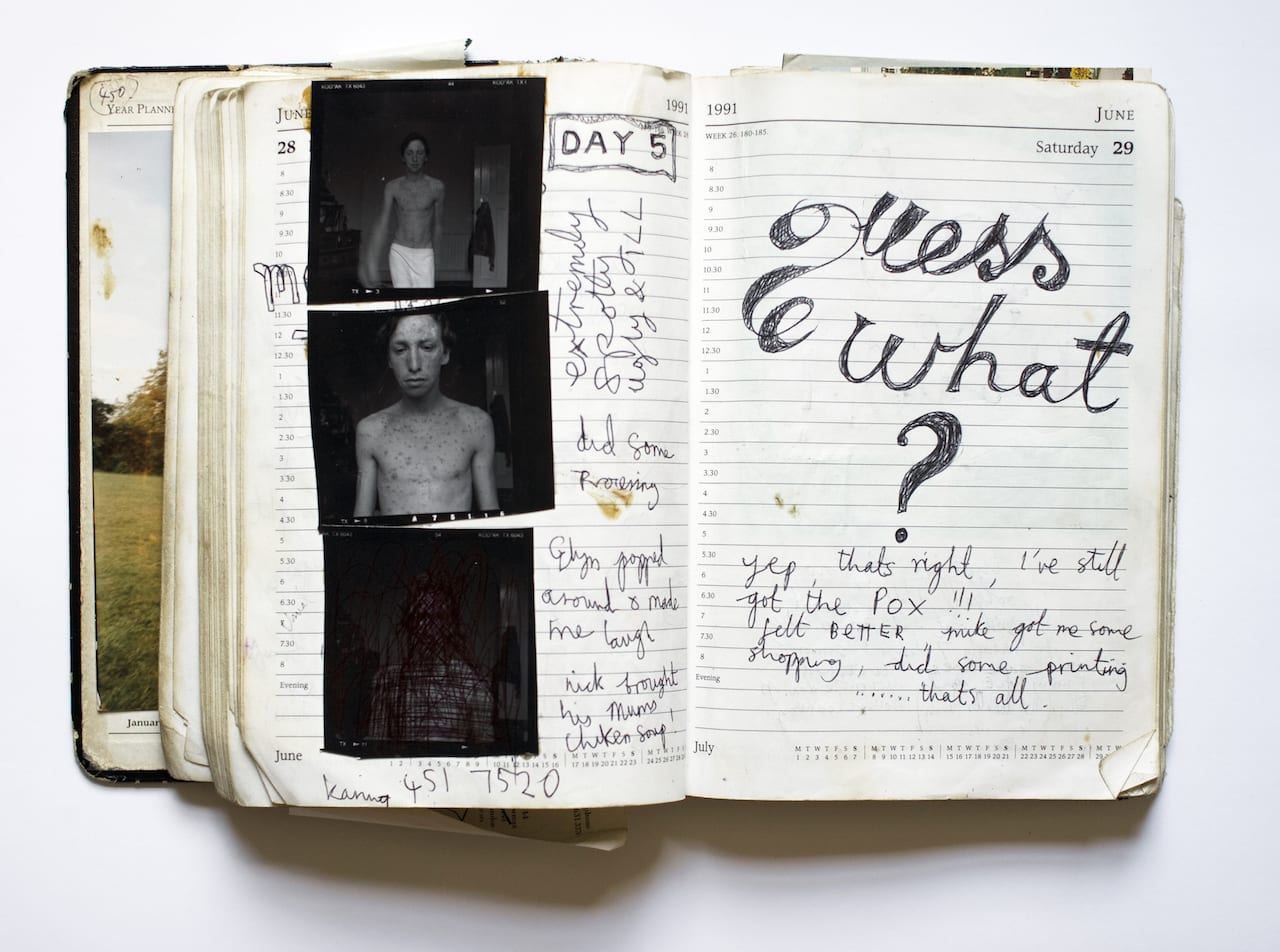 450
YEAR PLANNE
Januar
JUNE
1991
28
DAY 5
8
8.30
9
9.30
10
11.30
12
12.30
1
1.30
2
2.30
3
3.30
4
4.30
5
5.30
6
6.30
7.30
8
Evening
KODAK TX 6043
KODAK TX
TX
KODAK TX 6043
64
KODAK TX 6043
TX
extremely
spotty
ugly & ill
did some
Glyn popped
around & made
me laugh
nick brought
his mums
chiken soup!
June
M T W T F S S
1 2
3 4 5 6 7 8 9
10 11 12 13 14 15 16
17 18 19 20 21 22 23
451 7520
1991
JUNE
WEEK 26: 180-185.
Saturday 29
8
8.30
9
9.30
10
10.30
11
11.30
12
12.30
1
1.30
2
2.30
3
3.30
4
4.30
5
5.30
6
6.30
7
7.30
8
Evening
guess
what
?
yep, thats right, I've still
got the POX !!!
felt BETTER, mike got me some
shopping, did some printing
....... thats all.
July
M T W T F S S M T W T F S S M T W T F S S M T W T F S S M T W
1 2 3 4 5 6 7 8 9 10 11 12 13 14 15 16 17 18 19 20 21 22 23 24 25 26 27 28 29